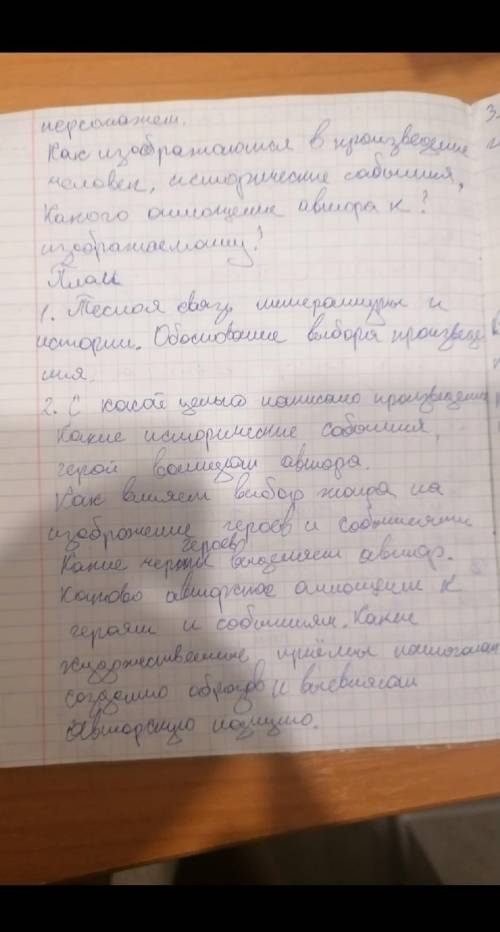 персонажем.
Как изображаются в произведение
человек, исторические события,
Какого отношение автора к?
изображаемому?
План
3.
1. Тесная связь литературы и
истории. Обоснование выбора произведе
ния.
2. С какой целью написано произведение
Какие исторические события,
герой автора.
Как влияет выбор жанра на
изображение героев и событиями
героев
Какие черты выделяет автор.
Каково авторское отношение к
героям и событиям. Какие
художественные приёмы помогают
создать образов и выявляют
Авторскую позицию.